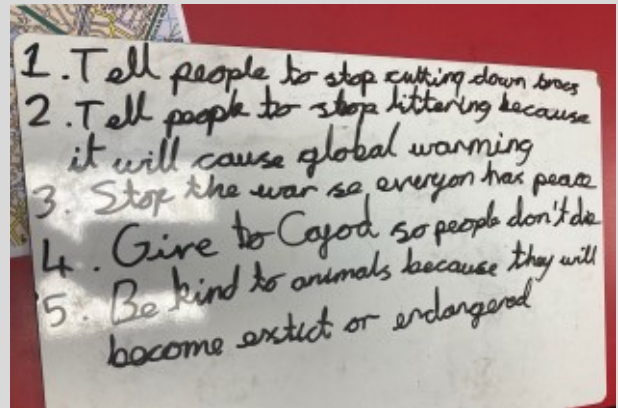 1. Tell people to stop cutting down trees
2. Tell people to stop littering because
it will cause global warming
3. Stop the war so everyon has peace
4. Give to Cafod so people don't die
5. Be kind to animals because they will
become exstict or endangered